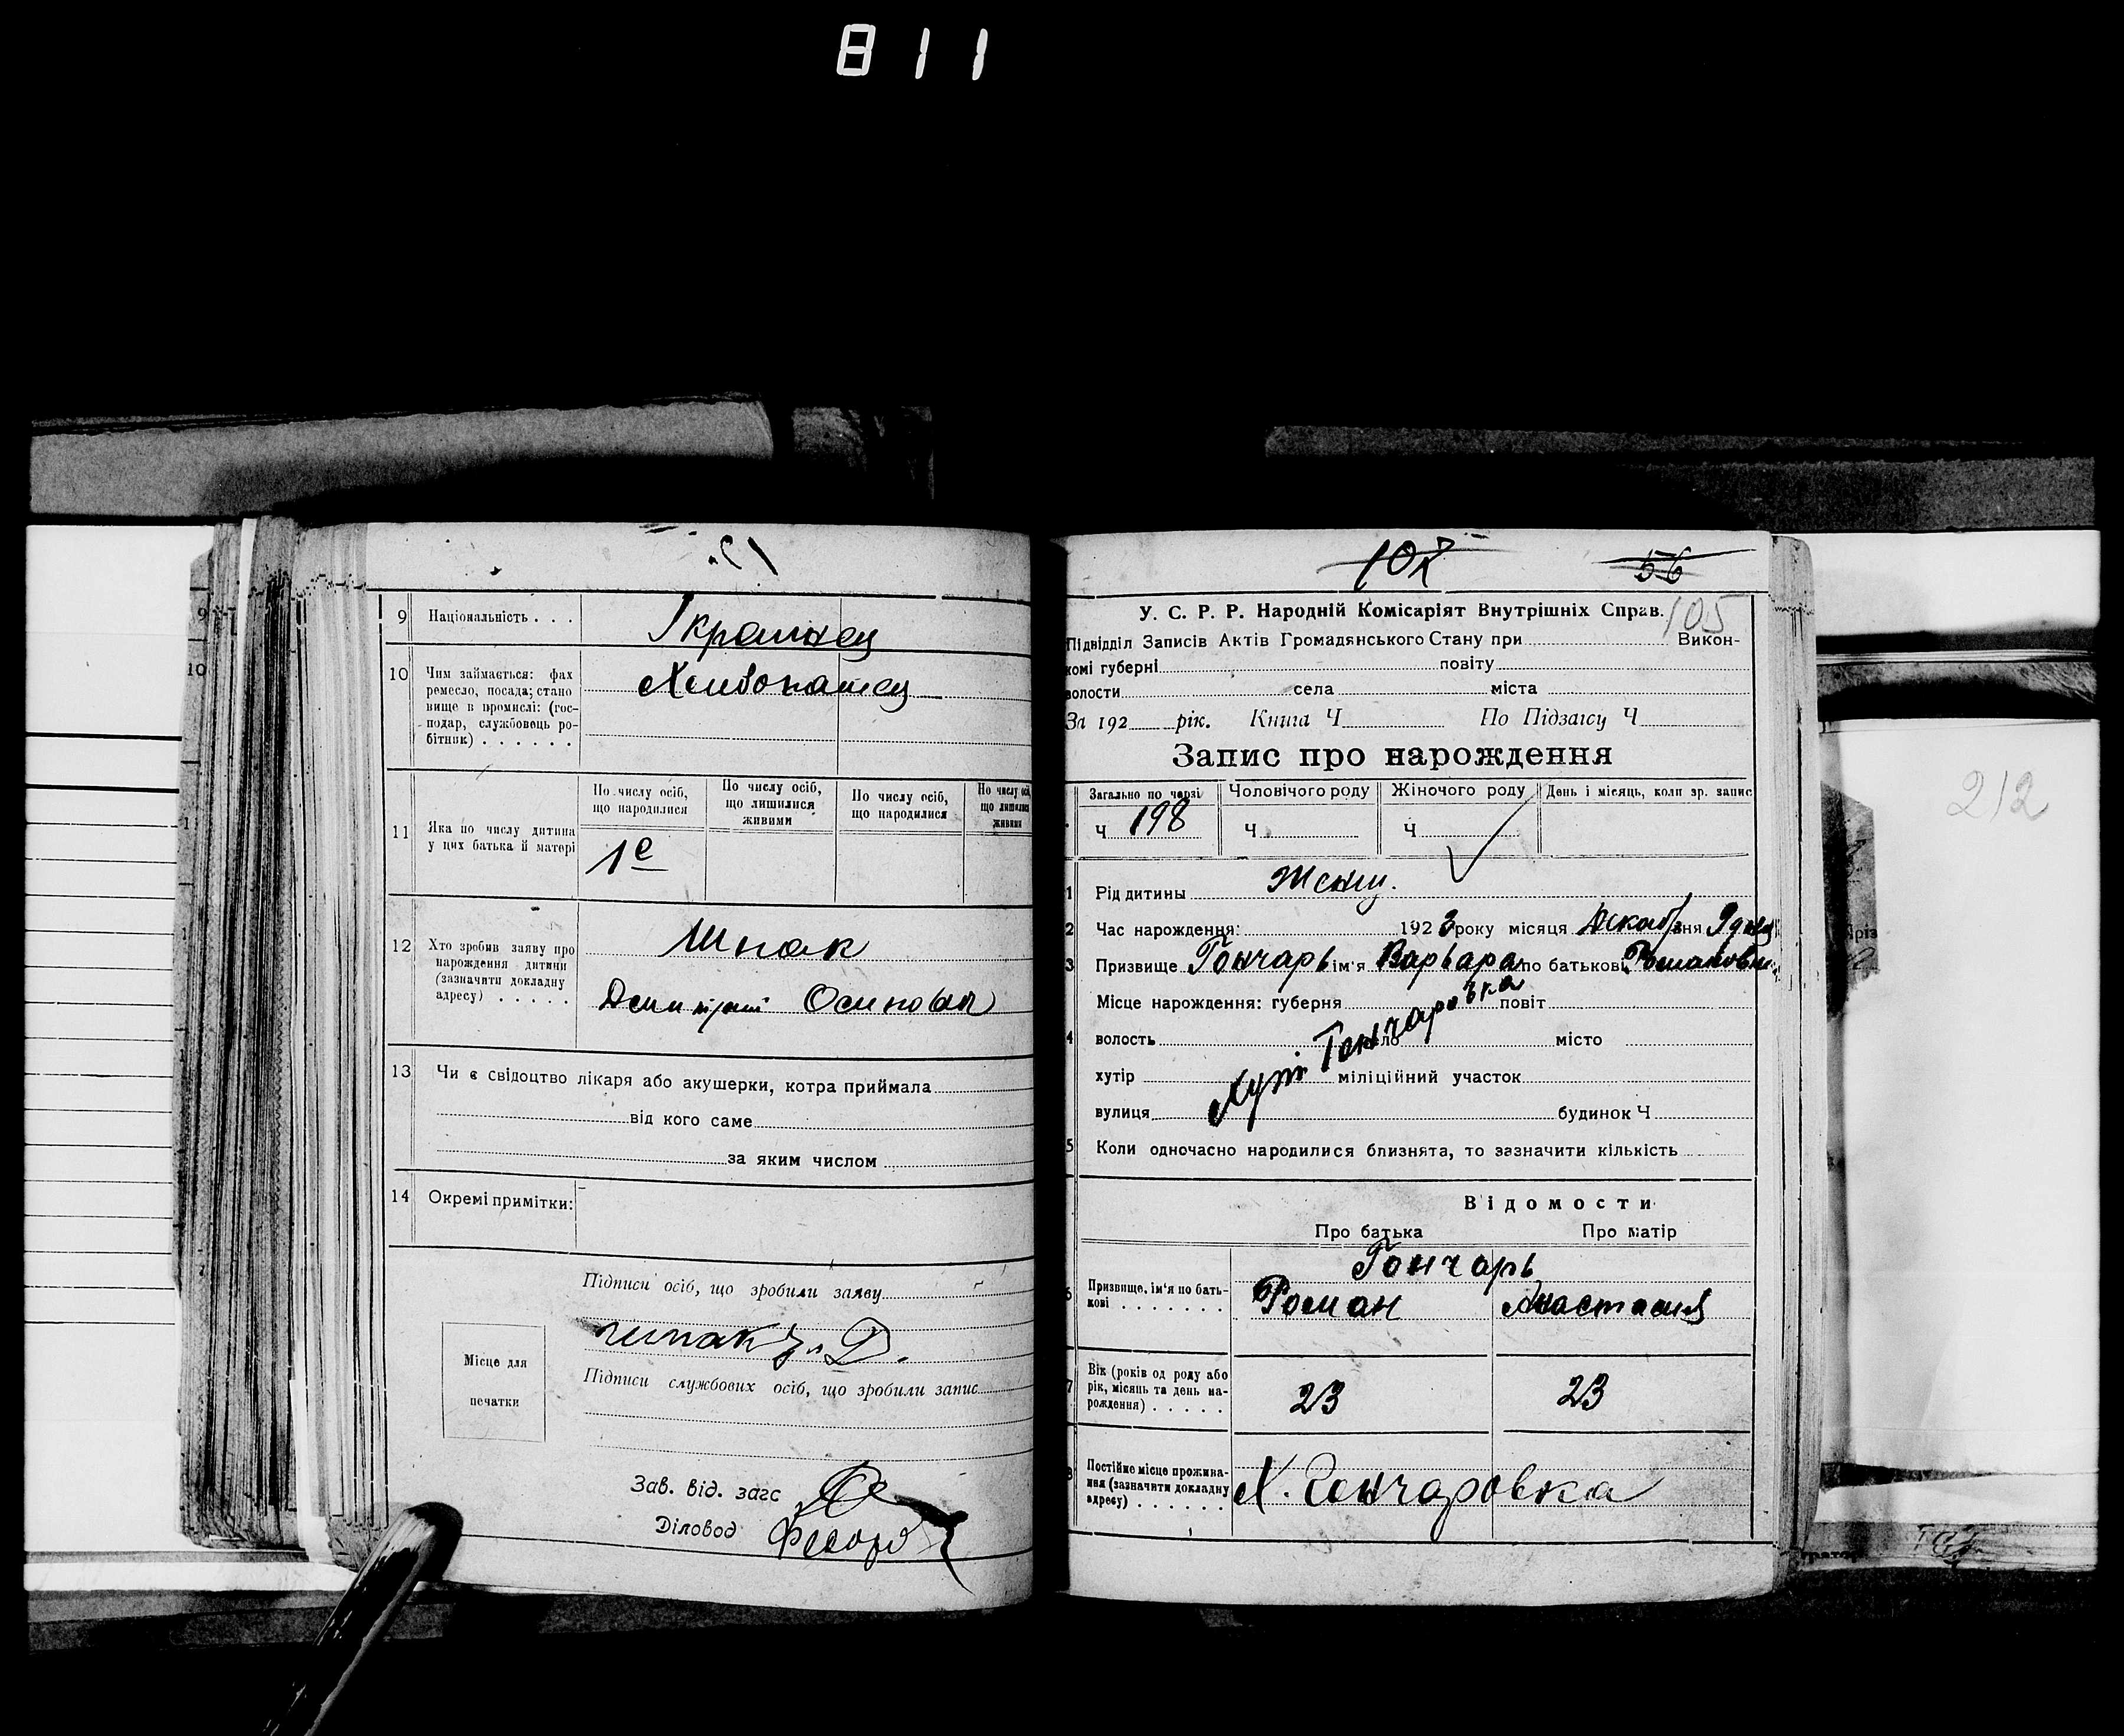 811
9 Національність . . . Украинец
10 Чим займається: фах
ремесло, посада; стано
вище в промислі: (гос-
подар, службовець ро-
бітник) . . . . . .
Хлибопашец
11 Яка по числу дитина
у цих батька й матері
По числу осіб,
що народилися
По числу осіб,
що лишилися
живими
По числу осіб,
що народилися
По числу осіб,
що лишилися
живими
1е
12 Хто зробив заяву про
нарождення дитини
(зазначити докладну
адресу) . . . . .
Шпак
Осипова
13 Чи є свідоцтво лікаря або акушерки, котра приймала
від кого саме
за яким числом
14 Окремі примітки:
Підписи осіб, що зробили заяву
Шпак
Місце для
печатки
Підписи службових осіб, що зробили запис
Зав. від. загс
Діловод
102 56
105
У. С. Р. Р. Народній Комісаріят Внутрішніх Справ.
Підвідділ Записів Актів Громадянського Стану при Викон-
комі губерні повіту
волости села міста
За 192 рік. Книга Ч По Підзагсу Ч
Запис про нарождення
Загально по черзі Чоловічого роду Жіночого роду День і місяць, коли зр. запис
Ч 198 Ч Ч
1 Рід дитини Женш.
2 Час нарождення: 1923 року місяця Декаб дня 9 дня
3 Призвище Гончарь ім'я Варвара по батькові Романовна
Місце нарождення: губерня повіт
4 волость село місто
Хут. Гончаровка
хутір міліційний участок
вулиця будинок Ч
5 Коли одночасно народилися близнята, то зазначити кількість
Відомости
Про батька Про матір
6 Призвище, ім'я по бать-
кові . . . . . . . .
Гончарь
Роман Анастасия
7 Вік (років од роду або
рік, місяць та день на-
рождення) . . . . .
23 23
8 Постійне місце прожива-
ння (зазначити докладну
адресу) . . . . . .
Х. Гончаровка
212